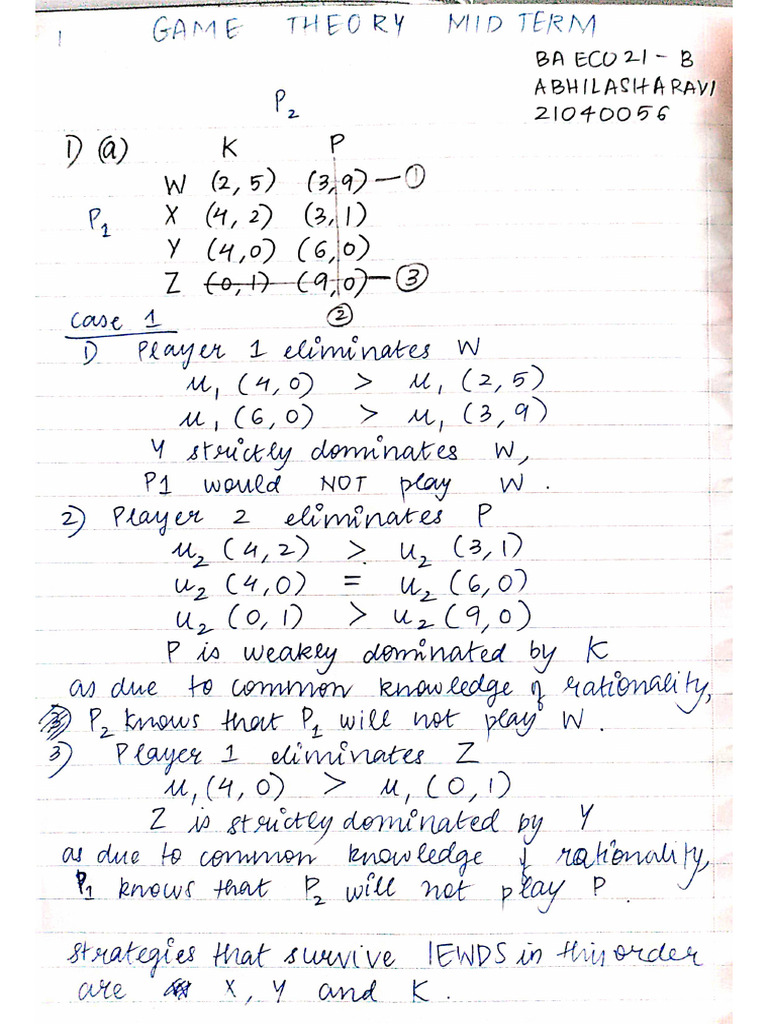 1 GAME THEORY MID TERM
BA ECO 21 - B
ABHILASHA RAVI
21040056
P2
1) (a) K P
W (2, 5) (3, 9) — ①
P1 X (4, 2) (3, 1)
Y (4, 0) (6, 0)
Z (0, 1) (9, 0) — ③
②
Case 1
1) Player 1 eliminates W
u1 (4, 0) > u1 (2, 5)
u1 (6, 0) > u1 (3, 9)
Y strictly dominates W,
P1 would NOT play W.
2) Player 2 eliminates P
u2 (4, 2) > u2 (3, 1)
u2 (4, 0) = u2 (6, 0)
u2 (0, 1) > u2 (9, 0)
P is weakly dominated by K
as due to common knowledge of rationality,
P2 knows that P1 will not play W.
3) Player 1 eliminates Z
u1 (4, 0) > u1 (0, 1)
Z is strictly dominated by Y
as due to common knowledge of rationality,
P1 knows that P2 will not play P.
strategies that survive IEWDS in this order
are X, Y and K.